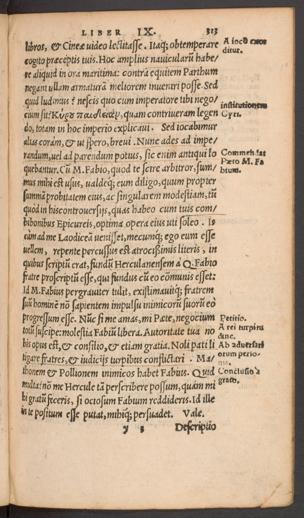 LIBER IX. 313
libros, & Cineæ uideo lectitasse. Itaq; obtemperare
cogito præceptis tuis. Hoc amplius nauicularū habe/
re aliquid in ora maritima: contra equitem Parthum
negant ullam armaturā meliorem inueniri posse. Sed
quid ludimus? nescis quo cum imperatore tibi nego/
cium sit. Κύρου παιδείαν, quam contriueram legen
do, totam in hoc imperio explicaui. Sed iocabimur
aliàs coràm, & ut spero, breui. Nunc ades ad impe/
randum, uel ad parendum potius, sic enim antiqui lo
quebantur. Cū M. Fabio, quod te scire arbitror, sum/
mus mihi est usus, ualdeq; eum diligo, quum propter
summā probitatem eius, ac singularem modestiam, tū
quòd in his controuersijs, quas habeo cum tuis com/
bibonibus Epicureis, optima opera eius uti soleo. Is
cùm ad me Laodiceā uenisset, mecumq; ego eum esse
uellem, repente percussus est atrocissimis literis, in
quibus scriptū erat, fundū Herculanensem à Q. Fabio
fratre proscriptū esse, qui fundus cū eo cōmunis esset:
Id M. Fabius pergrauiter tulit, existimauitq; fratrem
suū hominē nō sapientem impulsu inimicorū suorū eò
progressum esse. Nūc si me amas, mi Pæte, negocium
totū suscipe: molestia Fabiū libera. Autoritate tua no
bis opus est, & consilio, & etiam gratia. Noli pati li
tigare fratres, & iudicijs turpibus conflictari. Ma/
thonem & Pollionem inimicos habet Fabius. Quid
multa? nō me Hercule tā perscribere possum, quàm mi
hi gratū feceris, si ociosum Fabium reddideris. Id ille
in te positum esse putat, mihiq; persuadet. Vale.
y 3 Descriptio
A ioco exor
ditur.
institutionem
Cyri.
Commendat
Pæto M. Fa
bium.
Petitio.
A rei turpitu
dine.
Ab aduersari
orum perso/
nis.
Conclusio à
grato.